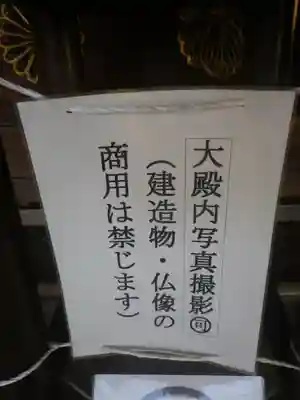 大殿内写真撮影㊞
（建造物・仏像の
商用は禁じます）